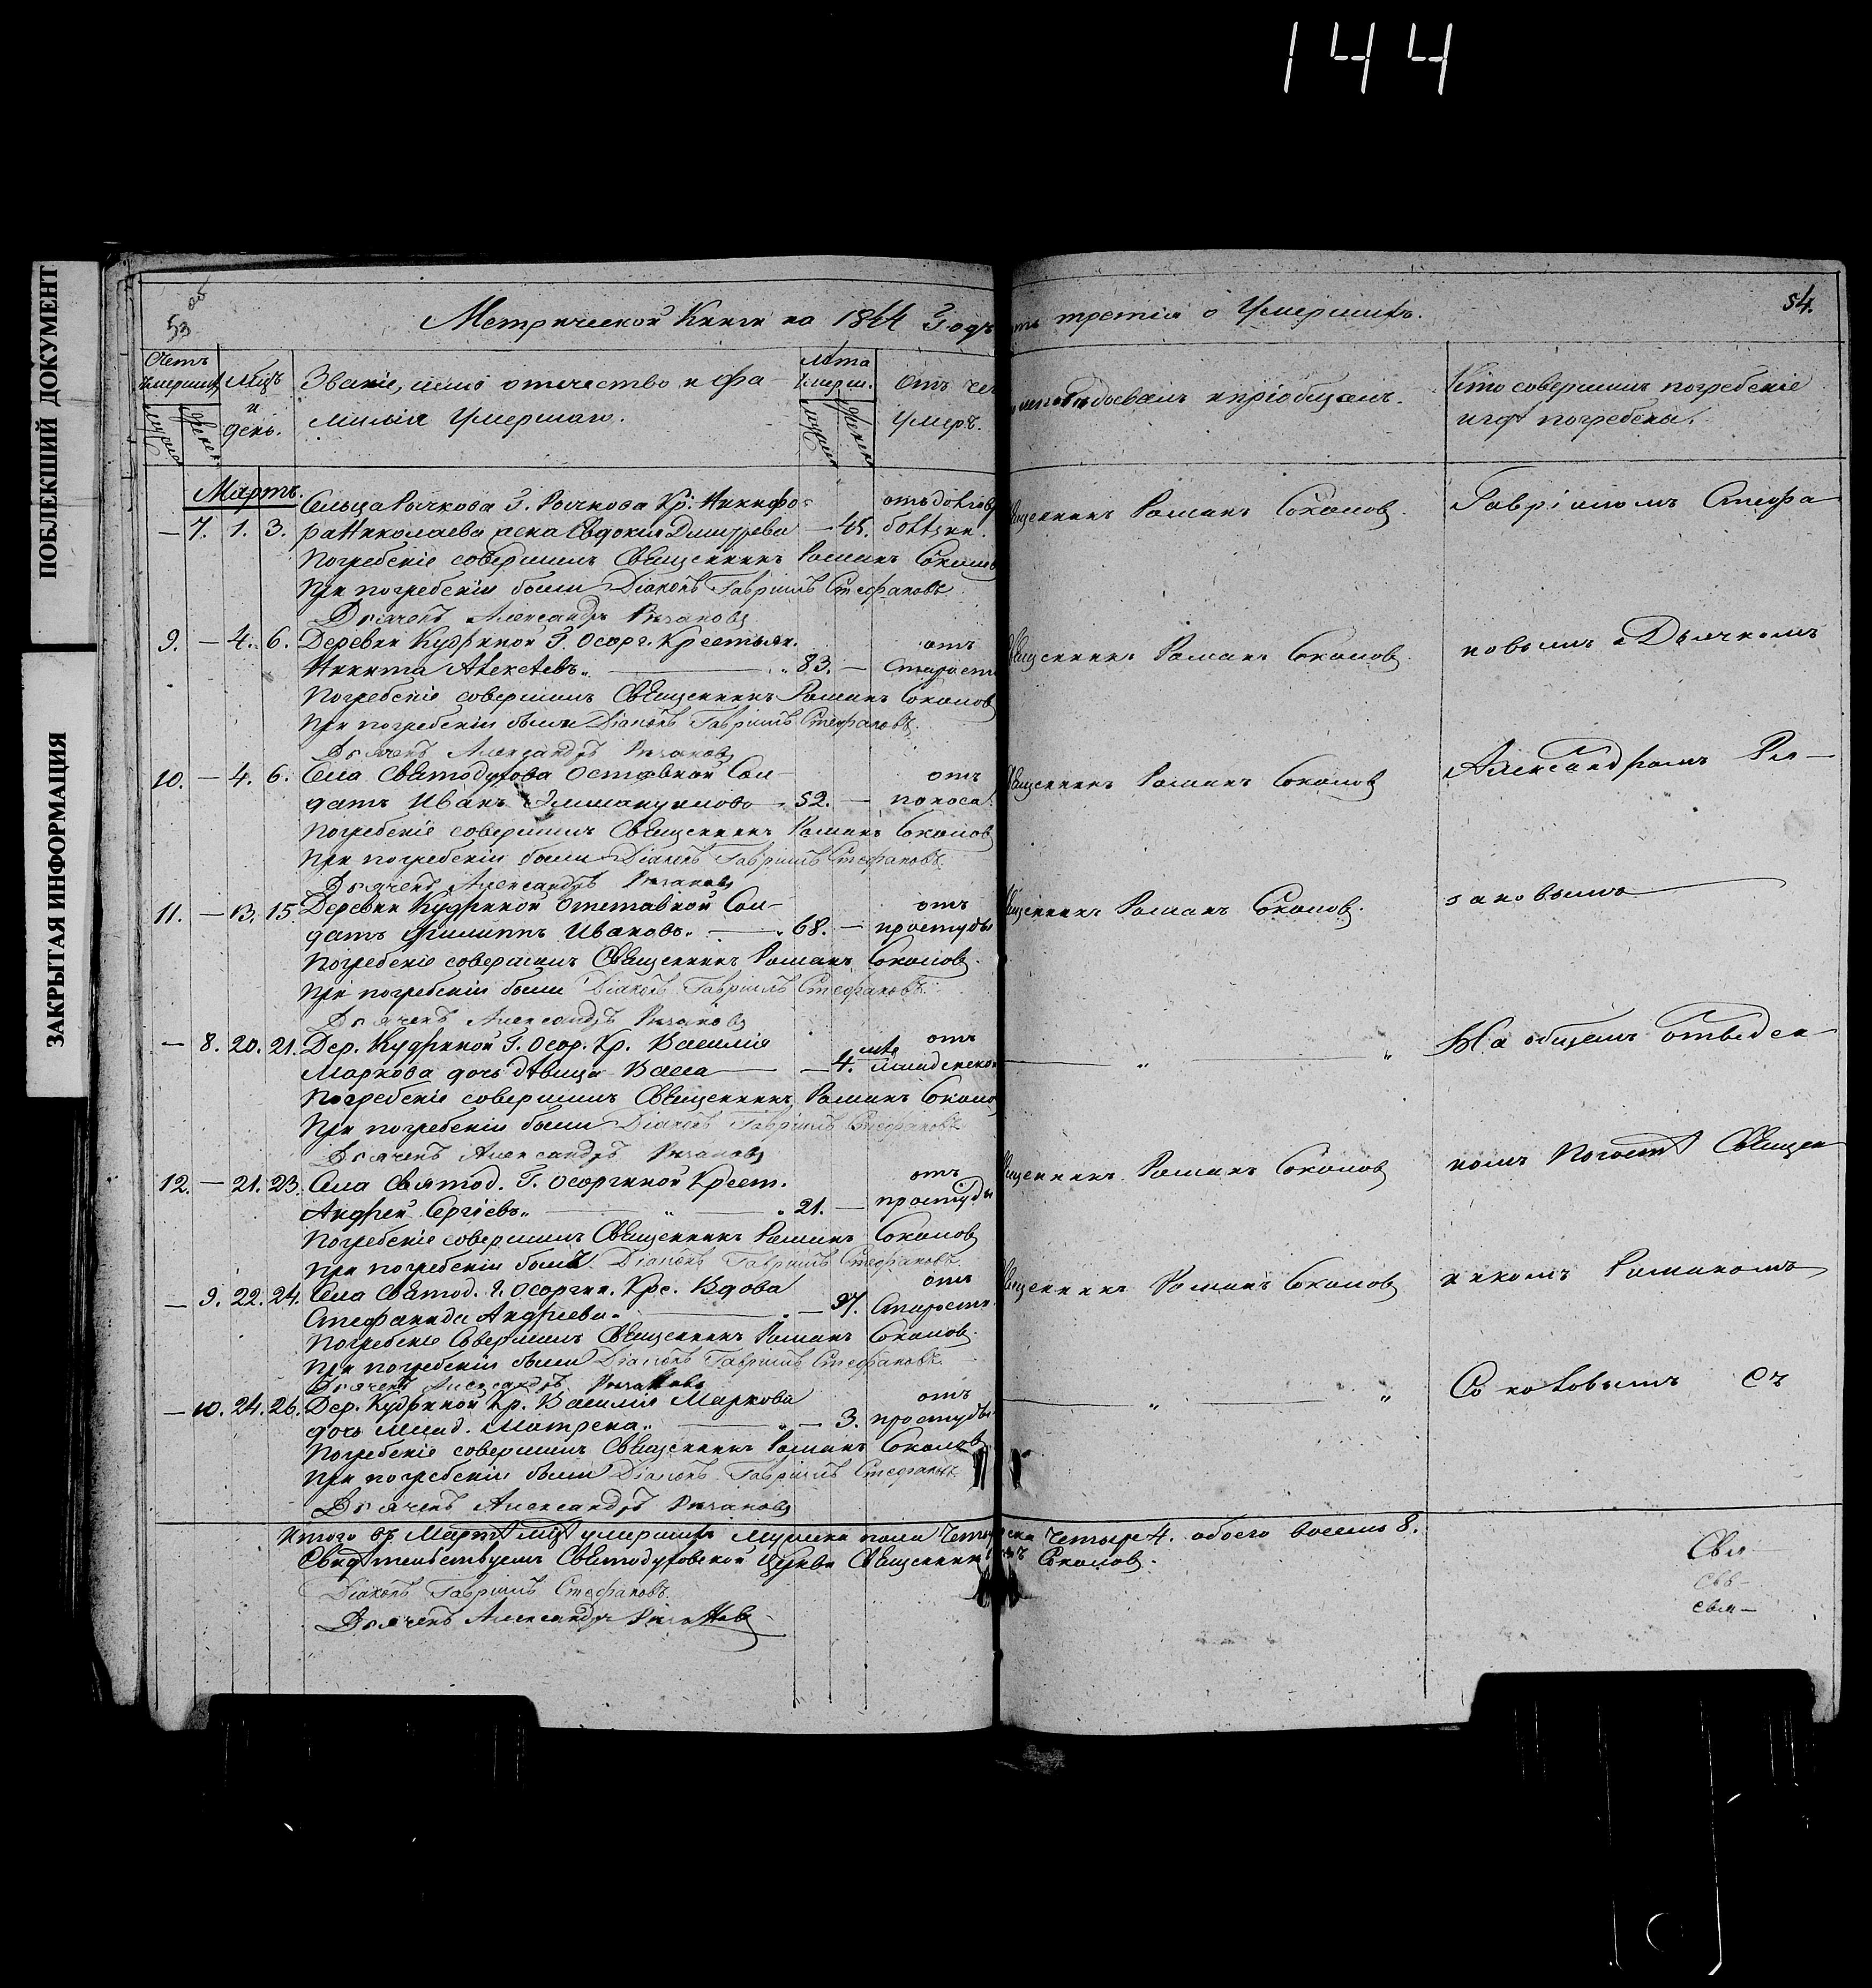 144
ПОБЛЕКШИЙ ДОКУМЕНТ
ЗАКРЫТАЯ ИНФОРМАЦИЯ
53 об
54.
Метрической Книги на 1844 Годъ третія о Умершихъ.
Счетъ умершихъ
Мцъ и день.
Званіе, имя отечество и фа-
милія Умершаго.
Лѣта Умерш.
Отъ чего
Умеръ.
исповѣдовалъ и пріобщалъ.
Кто совершилъ погребеніе
и гдѣ погребены.
Мартъ.
Сельца Рычкова Г. Рычкова Кр: Никифо-
— 7. 1. 3. ра Николаева жена Евдокія Дмитріева — 45.
Священникъ Романъ Соколовъ.
Гавріиломъ Стефа-
Погребеніе совершилъ Священникъ Романъ Соколовъ
При погребеніи были Діаконъ Гавріилъ Стефановъ
Дьячекъ Александръ
9. — 4. 6. Деревни Кудриной Г. Осорг. Крестьян. отъ
Никита Алексѣевъ. 83. — Старости
Священникъ Романъ Соколовъ.
новымъ и Дьячкомъ
Погребеніе совершилъ Священникъ Романъ Соколовъ
При погребеніи были Діаконъ Гавріилъ Стефановъ
Дьячекъ Александръ
10. — 4. 6. Села Святодухова Оставной Сол- отъ
датъ Иванъ Эммануилово 52. — поноса.
Священникъ Романъ Соколовъ
Александромъ
Погребеніе совершилъ Священникъ Романъ Соколовъ
При погребеніи были Діаконъ Гавріилъ Стефановъ
Дьячекъ Александръ
11. — 13. 15. Деревни Кудриной Отставной Сол- отъ
датъ Филиппъ Ивановъ. 68. — простуды
Священникъ Романъ Соколовъ.
зановымъ
Погребеніе совершилъ Священникъ Романъ Соколовъ.
При погребеніи были Діаконъ Гавріилъ Стефановъ
Дьячекъ Александръ
— 8. 20. 21. Дер. Кудриной Г. Осор. Кр. Василія отъ
Маркова дочь дѣвица Васса — 4. младенской
На общемъ отведен-
Погребеніе совершилъ Священникъ Романъ Соколовъ
При погребеніи были Діаконъ Гавріилъ Стефановъ
Дьячекъ Александръ
12. — 21. 23. Села Святод. Г. Осоргиной Крест. отъ
Андрей Сергіевъ. 21. — простуды
Священникъ Романъ Соколовъ
номъ Погостѣ Священ-
Погребеніе совершилъ Священникъ Романъ Соколовъ
При погребеніи были Діаконъ Гавріилъ Стефановъ.
— 9. 22. 24. Села Святод. Г. Осоргин. Кре. Вдова отъ
Стефанида Андреева. — 97. Старости.
Священникъ Романъ Соколовъ
никомъ Романомъ
Погребеніе Совершилъ Священникъ Романъ Соколовъ.
При погребеніи были Діаконъ Гавріилъ Стефановъ.
Дьячекъ Александръ
— 10. 24. 26. Дер. Кудриной Кр. Василія Маркова отъ
дочь млад. Матрена. — 3. простуды.
Соколовымъ съ
Погребеніе совершилъ Священникъ Романъ Соколовъ
При погребеніи были Діаконъ Гавріилъ Стефановъ
Дьячекъ Александръ
Итого въ Мартѣ мцѣ умершихъ Мужска пола Четыре Четыре 4. обоего восемь 8.
Свидѣтельствуемъ Святодуховской Церкви Священникъ Соколовъ.
Діаконъ Гавріилъ Стефановъ.
Дьячекъ Александръ